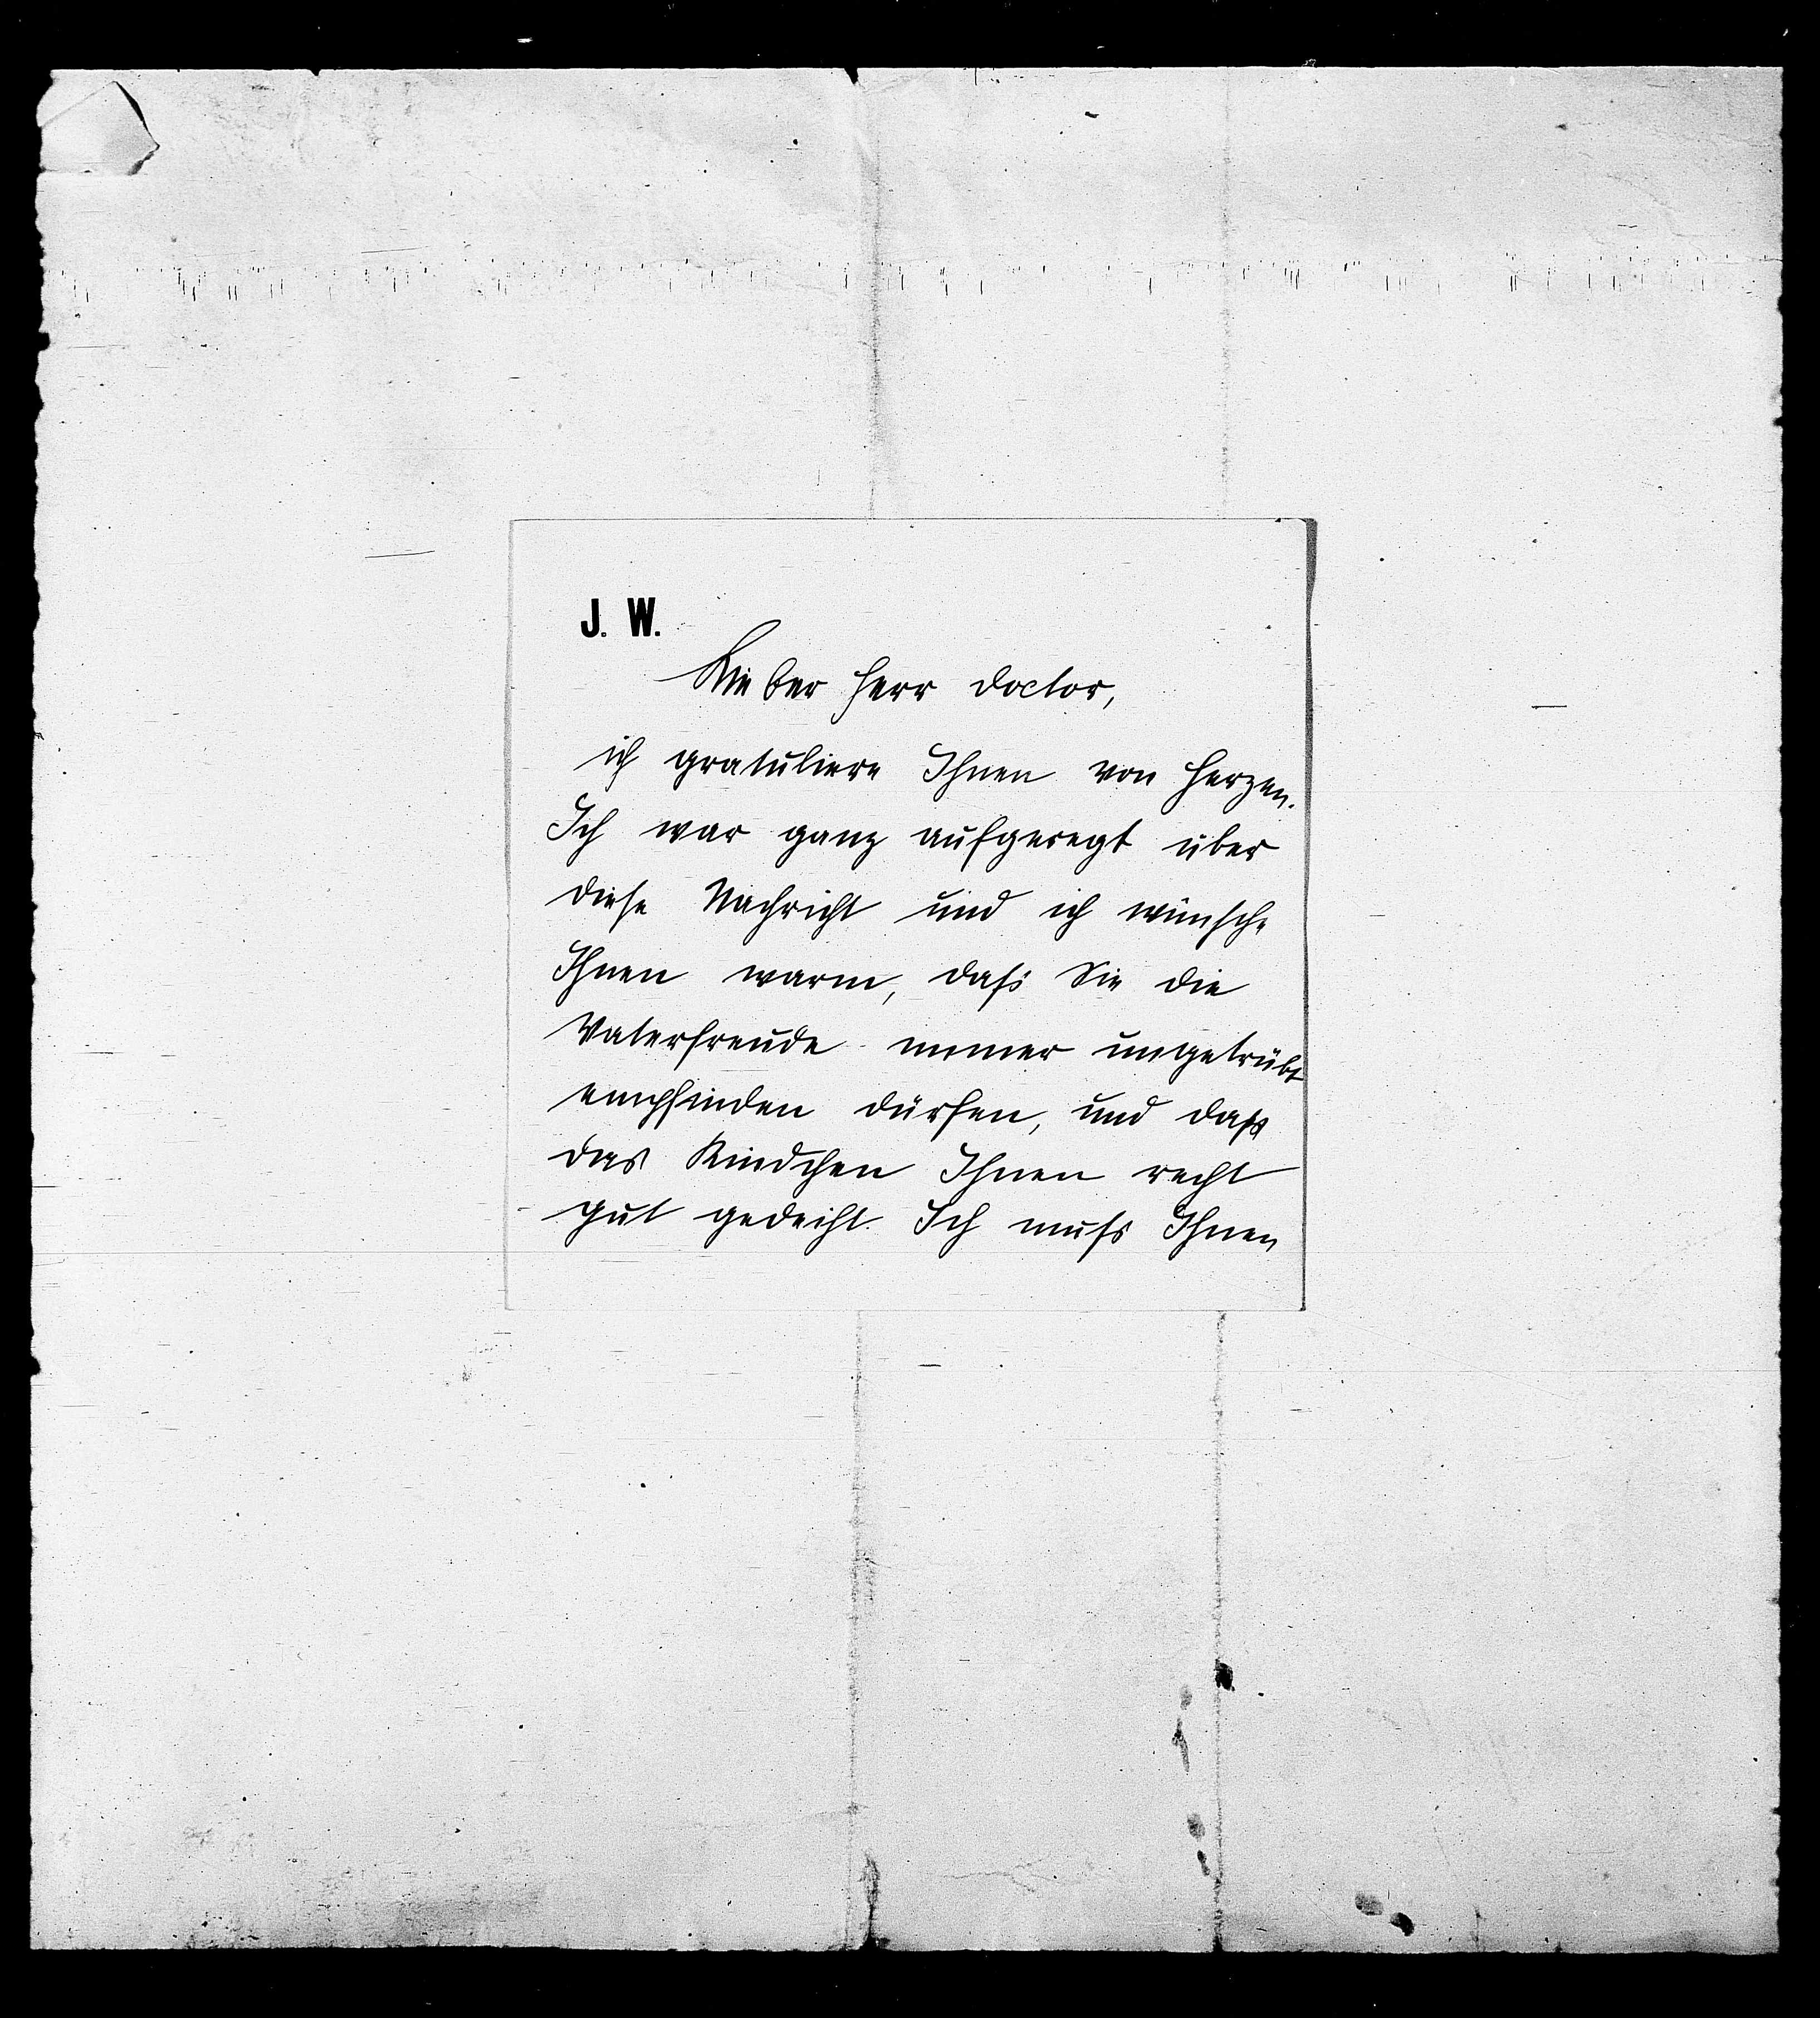 J. W.
Lieber Herr Doctor,
ich gratuliere Ihnen von Herzen.
Ich war ganz aufgeregt über
diese Nachricht und ich wünsche
Ihnen warm, dass Sie die
Vaterfreude immer ungetrübt
empfinden dürfen, und dass
das Kindchen Ihnen recht
gut gedeiht. Ich muss Ihnen